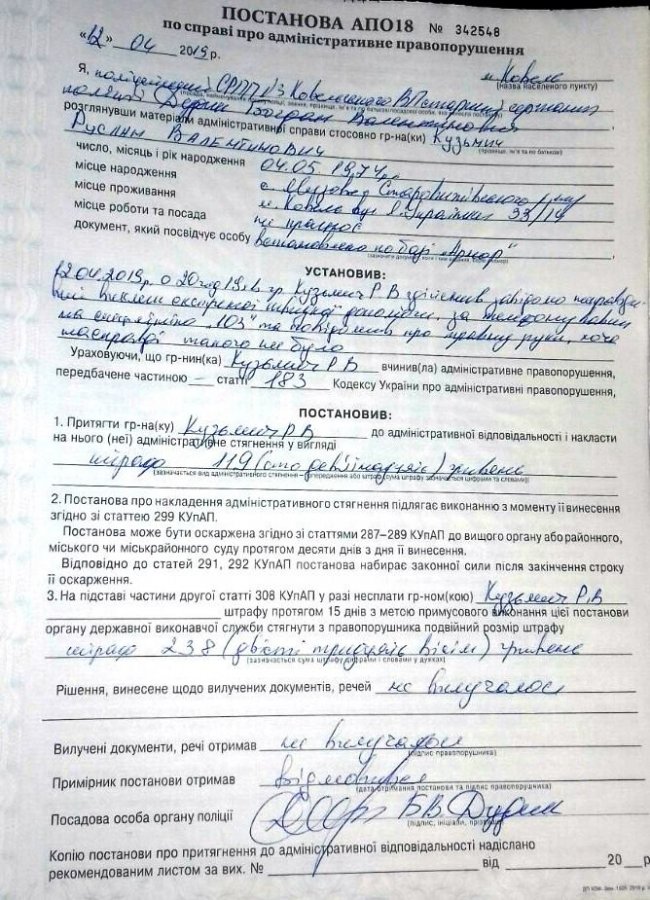 ПОСТАНОВА АПО18 № 342548
по справі про адміністративне правопорушення
«12» 04 2019р.
м. Ковель
(назва населеного пункту)
Я, поліцейський СРПП №3 Ковельського ВП старший сержант
поліції Богдан Валентинович
розглянувши матеріали адміністративної справи стосовно гр-на(ки) Кузьмич
Руслан Валентинович
число, місяць і рік народження 04.05 1974р.
місце народження с. Старовижівського р-ну
місце проживання м. Ковель вул Л.Українки 33/14
місце роботи та посада не працює
документ, який посвідчує особу встановлено по базі „Армор"
УСТАНОВИВ:
12.04.2019р. о 20 год 19 хв гр. Кузьмич Р В здійснив завідомо неправди-
вий виклик екстреної швидкої допомоги, за телефонувавши
на спецлінію „103" та повідомив про травму руки, хоча
насправді такого не було
Ураховуючи, що гр-нин(ка) Кузьмич Р В вчинив(ла) адміністративне правопорушення,
передбачене частиною — статті 183 Кодексу України про адміністративні правопорушення,
ПОСТАНОВИВ:
1. Притягти гр-на(ку) Кузьмич Р В до адміністративної відповідальності і накласти
на нього (неї) адміністративне стягнення у вигляді
штрафу 119 (сто дев'ятнадцять) гривень
(зазначається вид адміністративного стягнення – попередження або штраф (сума штрафу зазначається цифрами та словами))
2. Постанова про накладення адміністративного стягнення підлягає виконанню з моменту її винесення
згідно зі статтею 299 КУпАП.
Постанова може бути оскаржена згідно зі статтями 287–289 КУпАП до вищого органу або районного,
міського чи міськрайонного суду протягом десяти днів з дня її винесення.
Відповідно до статей 291, 292 КУпАП постанова набирає законної сили після закінчення строку
її оскарження.
3. На підставі частини другої статті 308 КУпАП у разі несплати гр-ном(кою) Кузьмич Р,В
штрафу протягом 15 днів з метою примусового виконання цієї постанови
органу державної виконавчої служби стягнути з правопорушника подвійний розмір штрафу
штраф 238 (двісті тридцять вісім) гривень
(зазначається сума штрафу цифрами і словами у дужках)
Рішення, винесене щодо вилучених документів, речей не вилучалося
Вилучені документи, речі отримав не вилучалося
(підпис правопорушника)
Примірник постанови отримав відмовився
(дата отримання постанови та підпис правопорушника)
Посадова особа органу поліції Б В
Копію постанови про притягнення до адміністративної відповідальності надіслано
рекомендованим листом за вих. № від 20 р.